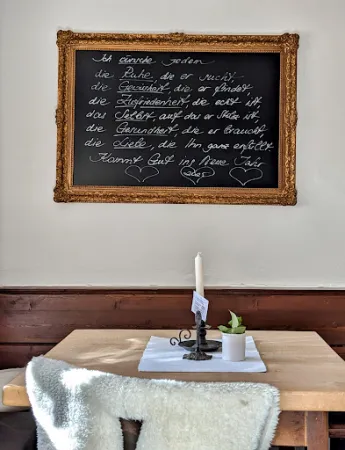 Ich wünsche jedem
die Ruhe, die er sucht,
die Gewissheit, die er findet,
die Zufriedenheit, die echt ist,
das Selbst, auf das er Stolz ist,
die Gesundheit, die er braucht
die Liebe, die Ihn ganz erfüllt
Kommt Gut ins Neue Jahr